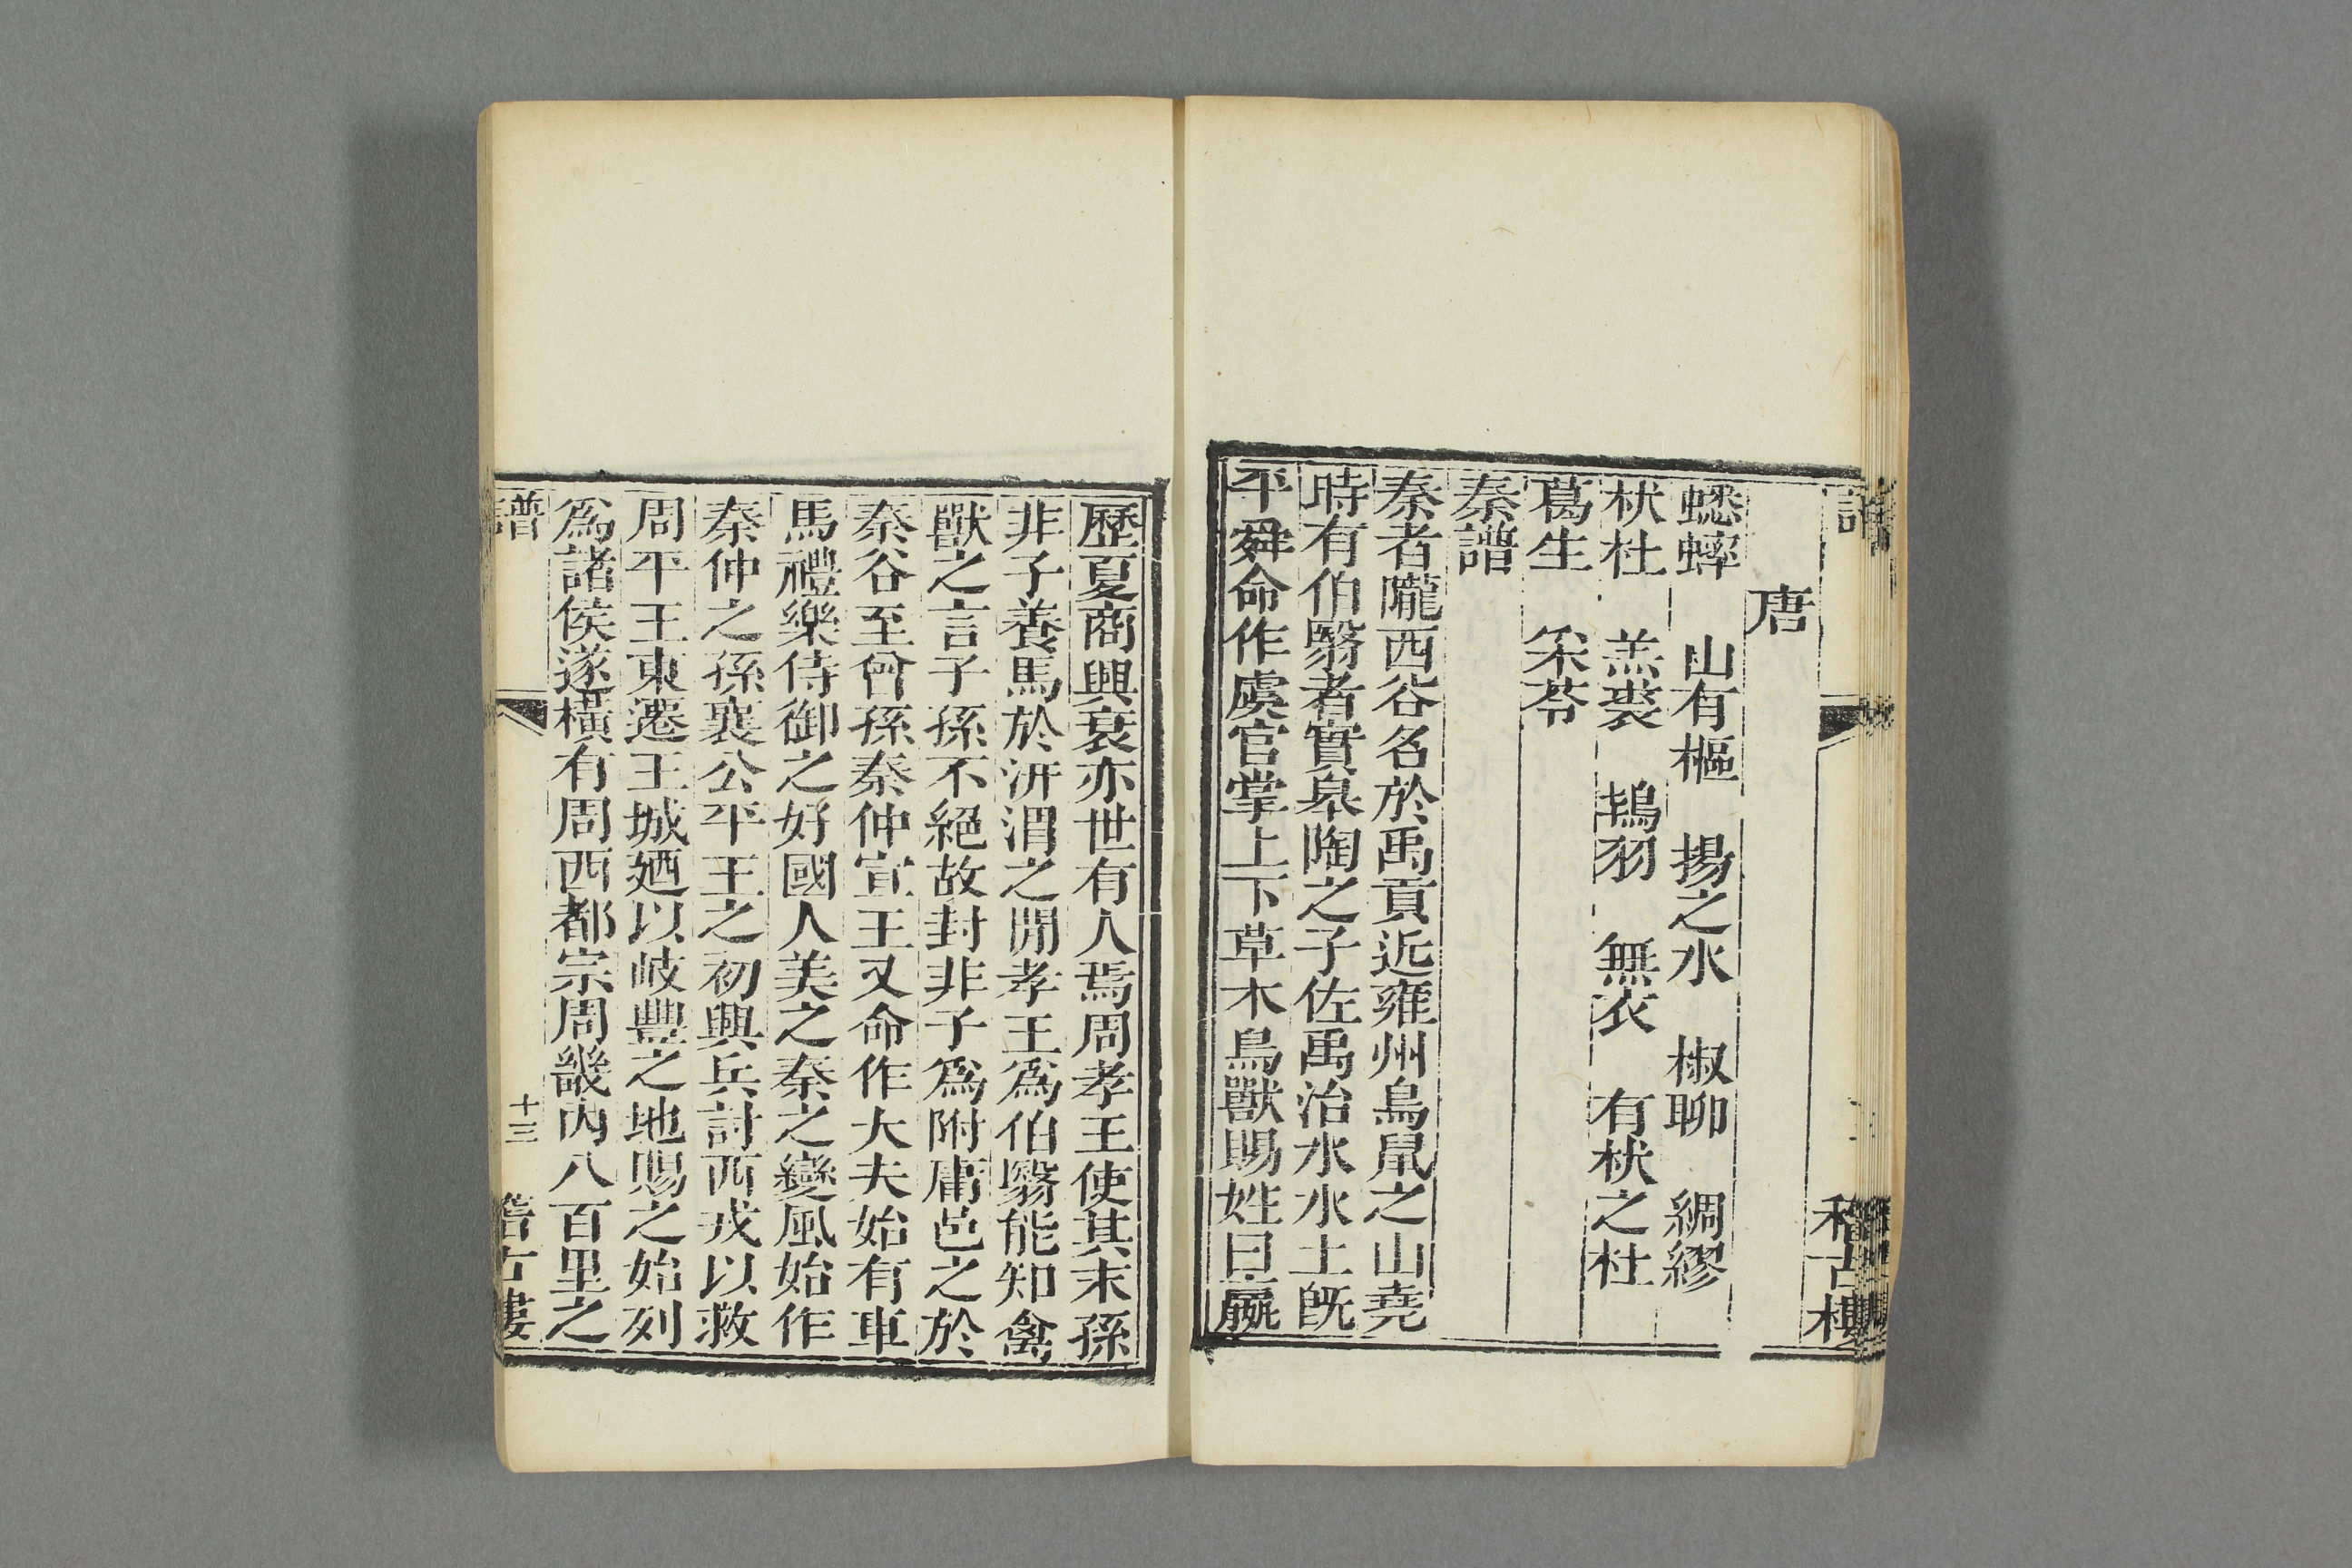 譜 稽古樓
唐
蟋蟀 山有樞 揚之水 椒聊 綢繆
杕杜 羔裘 鴇羽 無衣 有杕之杜
葛生 采苓
秦譜
秦者隴西谷名於禹貢近雍州鳥鼠之山堯
時有伯翳者實臯陶之子佐禹治水水土旣
平舜命作虞官掌上下草木鳥獸賜姓曰嬴
歷夏商興衰亦世有人焉周孝王使其末孫
非子養馬於汧渭之閒孝王爲伯翳能知禽
獸之言子孫不絕故封非子爲附庸邑之於
秦谷至曾孫秦仲宣王又命作大夫始有車
馬禮樂侍御之好國人美之秦之變風始作
秦仲之孫襄公平王之初興兵討西戎以救
周平王東遷王城廼以岐豐之地賜之始列
爲諸侯遂橫有周西都宗周畿內八百里之
譜 十三 稽古樓